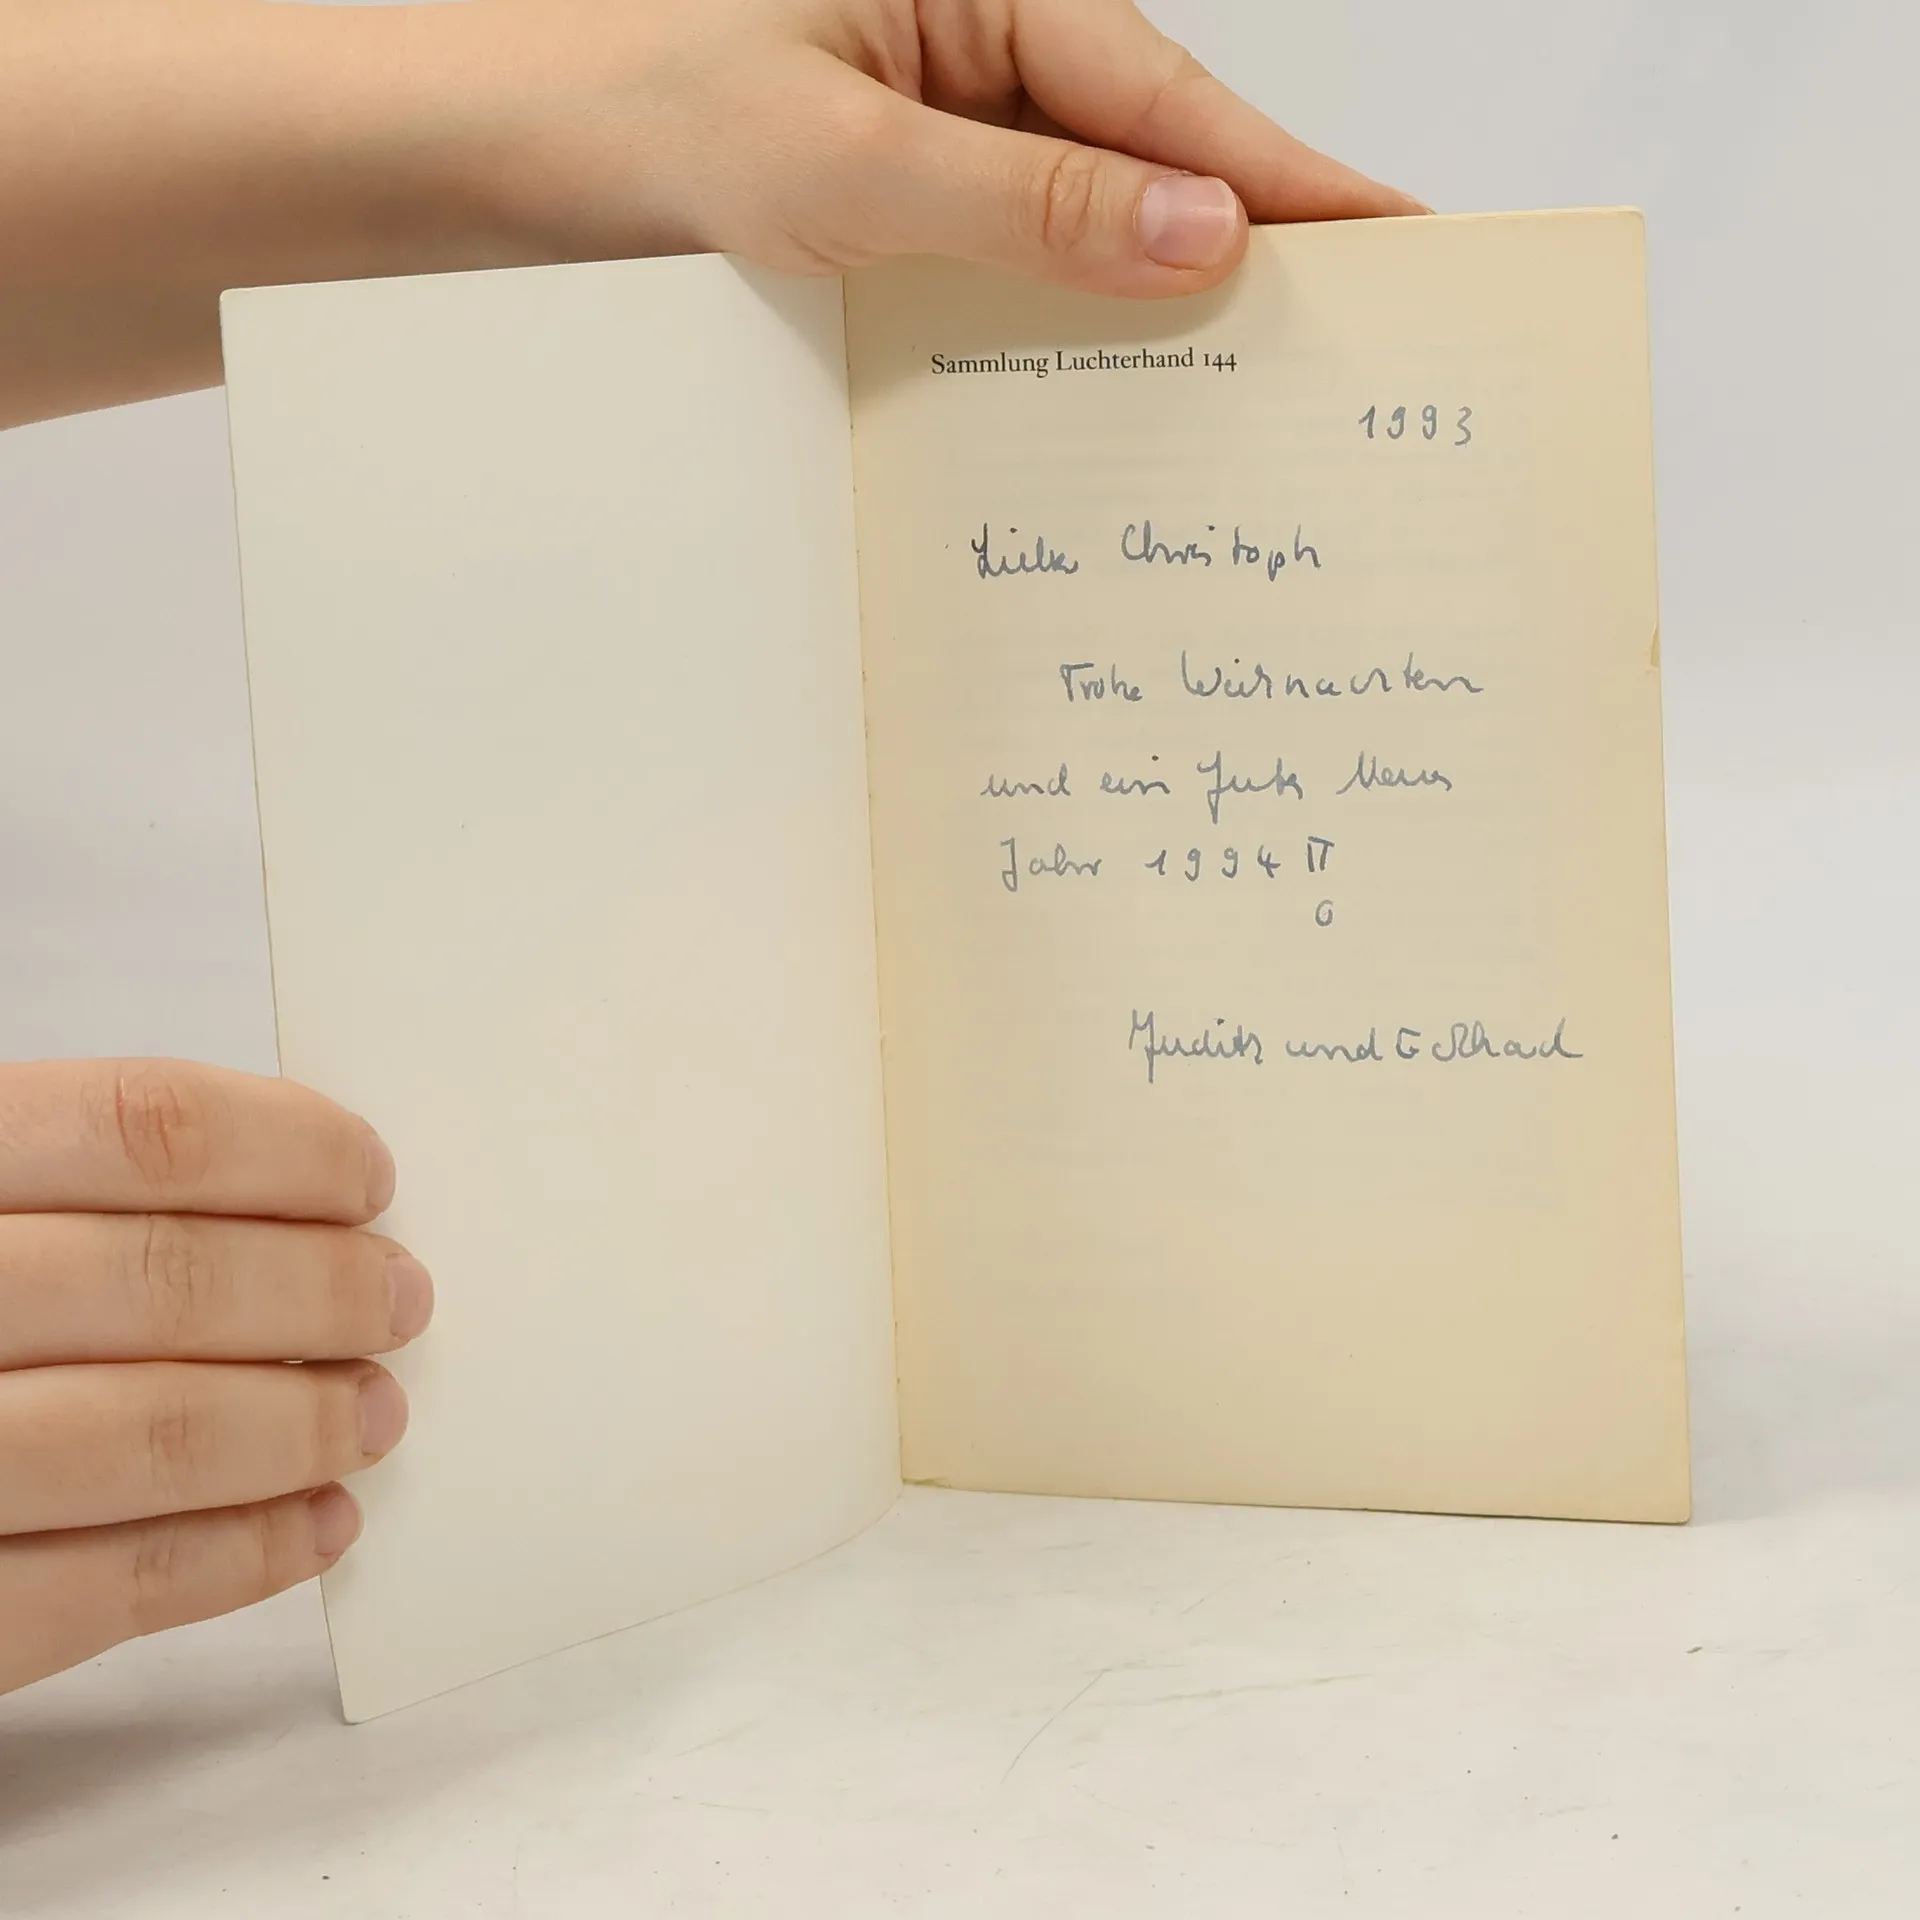 Sammlung Luchterhand 144
1993
Lieber Christoph
Frohe Weihnachten
und ein Gutes Neues
Jahr 1994
Judith und Eckhad